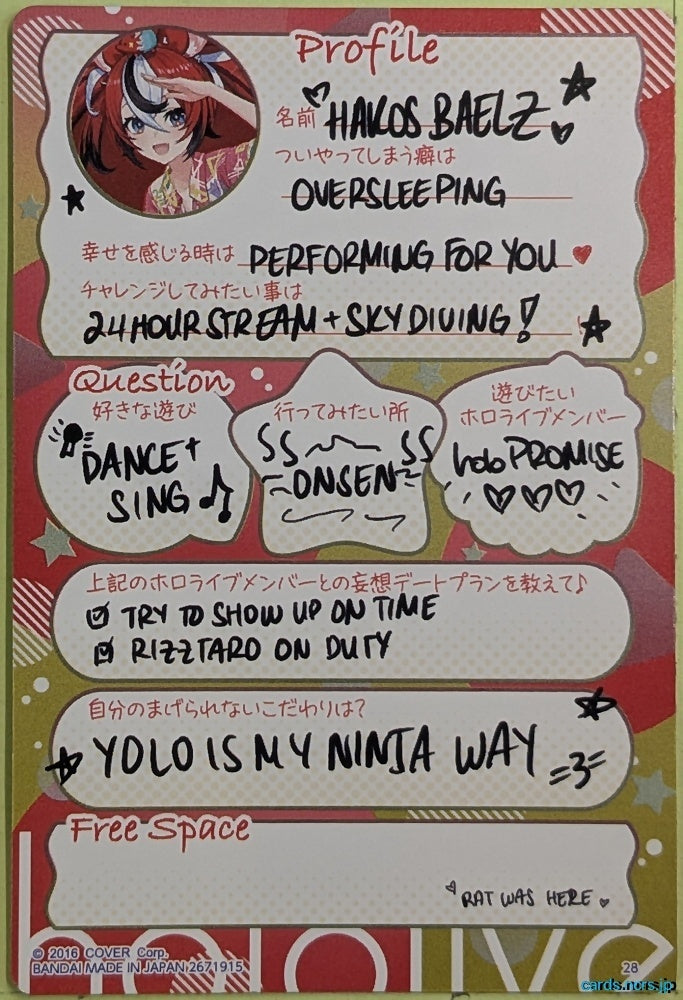 Profile
名前 HAKOS BAELZ
ついやってしまう癖は
OVERSLEEPING
幸せを感じる時は PERFORMING FOR YOU
チャレンジしてみたい事は
24 HOUR STREAM + SKYDIVING!
Question
好きな遊び
DANCE +
SING
行ってみたい所
ONSEN
遊びたい
ホロライブメンバー
holoPROMISE
上記のホロライブメンバーとの妄想デートプランを教えて♪
TRY TO SHOW UP ON TIME
RIZZTARO ON DUTY
自分のまげられないこだわりは?
YOLO IS MY NINJA WAY =3=
Free Space
RAT WAS HERE
hololive
© 2016 COVER Corp.
BANDAI MADE IN JAPAN 2671915
28
cards.nors.jp